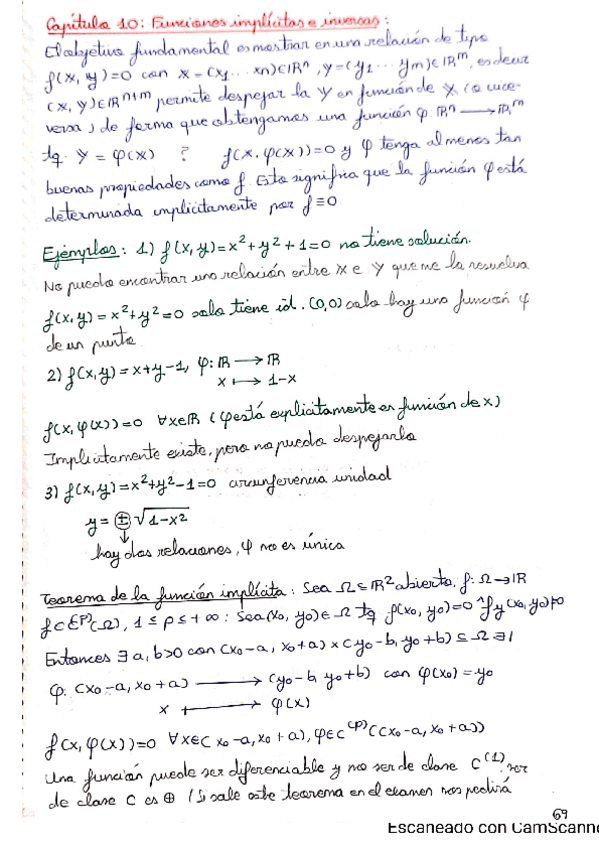 Capítulo 10: Funciones implícitas e inversas:
El objetivo fundamental es mostrar en una relación de tipo
f(x, y)=0 con x=(x₁...xn)∈ℝⁿ, y=(y₁...ym)∈ℝᵐ, es decir
(x, y)∈ℝⁿ⁺ᵐ permite despejar la y en función de x (o vice-
versa) de forma que obtengamos una función φ: ℝⁿ ⟶ ℝᵐ
tq. y = φ(x) ? f(x, φ(x))=0 y φ tenga al menos tan
buenas propiedades como f. Esto significa que la función φ está
determinada implícitamente por f≡0
Ejemplos: 1) f(x,y)=x²+y²+1=0 no tiene solución.
No puedo encontrar una relación entre x e y que me la resuelva
f(x,y)=x²+y²=0 solo tiene sol. (0,0) solo hay una función φ
de un punto
2) f(x,y)=x+y-1, φ: ℝ ⟶ ℝ
x ⟼ 1-x
f(x, φ(x))=0 ∀x∈ℝ (φ está explícitamente en función de x)
Implícitamente existe, pero no puedo despejarla
3) f(x,y)=x²+y²-1=0 circunferencia unidad
y=±√1-x²
↓
hay dos relaciones, φ no es única
Teorema de la función implícita: Sea Ω⊆ℝ² abierto, f: Ω→ℝ
f∈C⁽ᵖ⁾(Ω), 1≤p≤+∞: Sea (x₀, y₀)∈Ω tq f(x₀, y₀)=0 ^ fy(x₀,y₀)≠0
Entonces ∃ a, b>0 con (x₀-a, x₀+a)×(y₀-b, y₀+b)⊆Ω ∃!
φ: (x₀-a, x₀+a) ⟶ (y₀-b, y₀+b) con φ(x₀)=y₀
x ⟼ φ(x)
f(x, φ(x))=0 ∀x∈(x₀-a, x₀+a), φ∈C⁽ᵖ⁾((x₀-a, x₀+a))
Una función puede ser diferenciable y no ser de clase C⁽¹⁾, ser
de clase C es ⊕ (Si sale este teorema en el examen nos pedirá
69
Escaneado con CamScanne